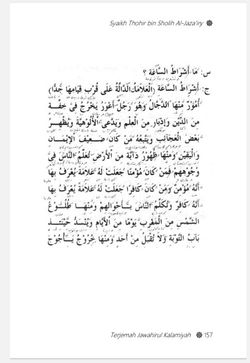 Syaikh Thohir bin Sholih Al-Jaza'iry
س: مَا أَشْرَاطُ السَّاعَةِ ؟
ج: أَشْرَاطُ السَّاعَةِ (الْعَلَامَةُ الدَّالَّةُ عَلَى قُرْبِ قِيَامِهَا جِدًّا)
أُمُوْرٌ مِنْهَا الدَّجَّالُ وَهُوَ رَجُلٌ أَعْوَرُ يَخْرُجُ فِيْ خِفَّةٍ
مِنَ الدِّيْنِ وَإِدْبَارٍ مِنَ الْعِلْمِ وَيَدَّعِي الْأُلُوْهِيَّةَ وَيُظْهِرُ
بَعْضَ الْعَجَائِبِ وَيَتَّبِعُهُ مَنْ كَانَ ضَعِيْفَ الْإِيْمَانِ
وَالْيَقِيْنِ وَمِنْهَا ظُهُوْرُ دَابَّةٍ مِنَ الْأَرْضِ تُعَلِّمُ النَّاسَ فِيْ
وُجُوْهِهِمْ فَمَنْ كَانَ مُؤْمِنًا جَعَلَتْ لَهُ عَلَامَةً يُعْرَفُ بِهَا
أَنَّهُ مُؤْمِنٌ وَمَنْ كَانَ كَافِرًا جَعَلَتْ لَهُ عَلَامَةً يُعْرَفُ بِهَا
أَنَّهُ كَافِرٌ وَتُكَلِّمُ النَّاسَ بِأَحْوَالِهِمْ وَمِنْهَا طُلُوْعُ
الشَّمْسِ مِنَ الْمَغْرِبِ يَوْمًا مِنَ الْأَيَّامِ وَيُسَدُّ حِيْنَئِذٍ
بَابُ التَّوْبَةِ وَلَا تُقْبَلُ مِنْ أَحَدٍ وَمِنْهَا خُرُوْجُ يَأْجُوْجَ
Terjemah Jawahirul Kalamiyah 157